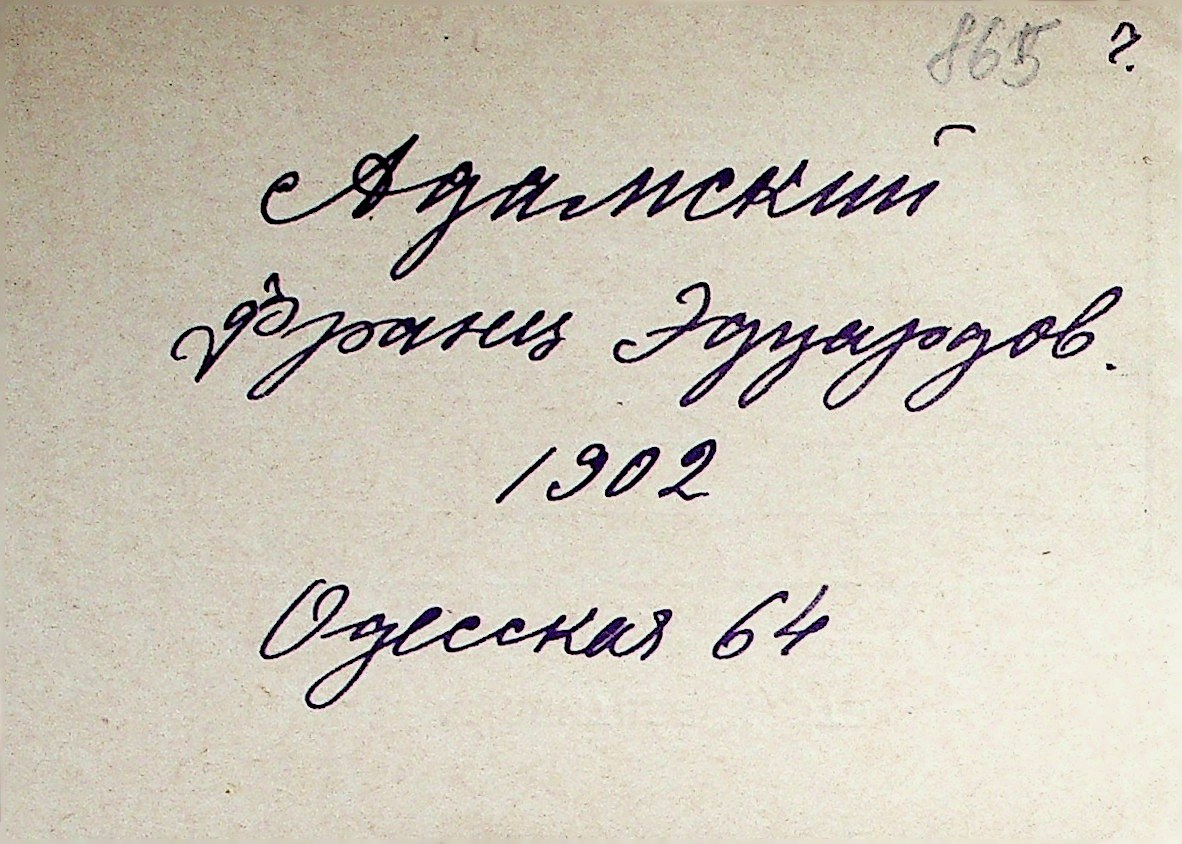 865 ?
Адамский
Франц Эдуардов.
1902
Одесская 64